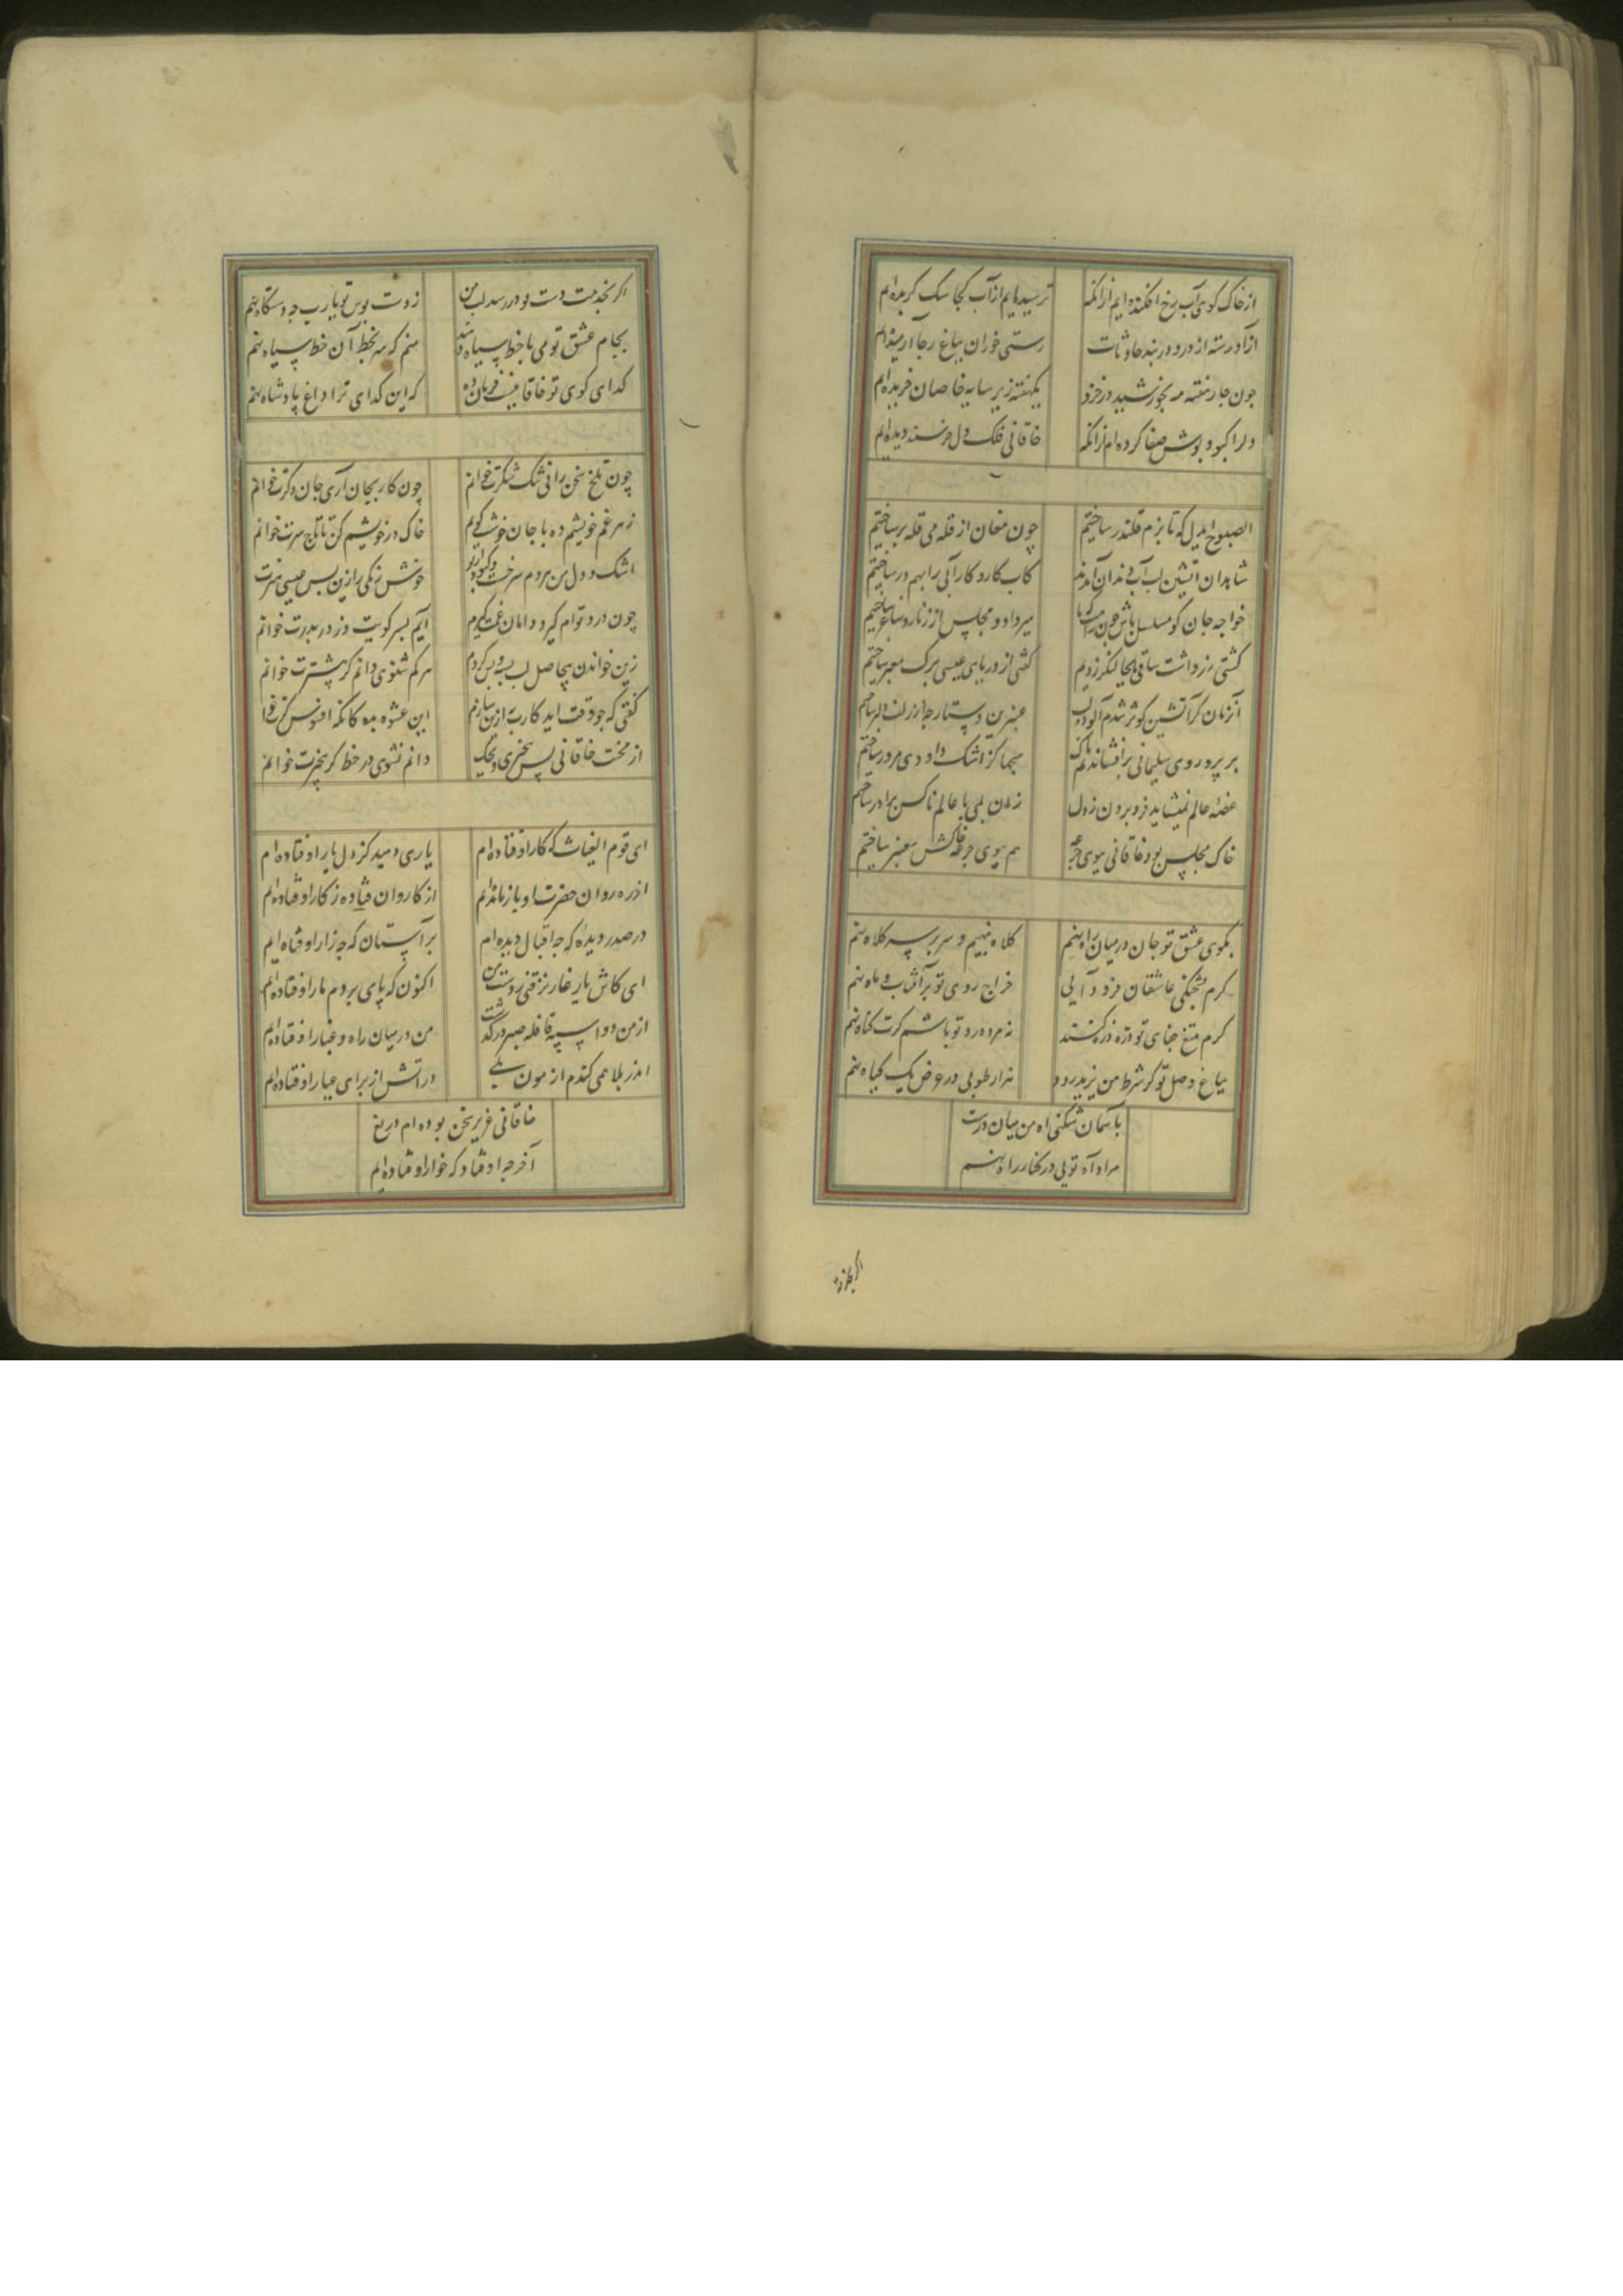 از خاک کوی آب رخ افکنده‌ایم ازانکه ترسیده‌ایم از آب کجا سک کزیده‌ایم
آزاد رسته از در و دربند حادثات رستی خوران بباغ رجا آرمیده‌ایم
چون جار هفته مه بخورشید درخزد یکهفته زیر سایه خاصان خزیده‌ایم
دل را کبود پوش صفا کرده‌ام ازانکه خاقانی فلک دل خرسند دیده‌ایم
الصبوح ایدل که تا بزم قلندر ساختیم چون مغان از قله می قله بر ساختیم
شاهدان آتشین لب آب دندان آمدند کاب کار و کار آبی را بهم در ساختیم
خواجه جان کو مسلسل باش چون میر داد و مجلس از زنار و ساغر ساختیم
کشتی زر داشت ساقی ما بجا لنکر زدیم کفتی از دریای عیسی برک معبر ساختیم
آنزمان کز آتشین کوثر شدیم آلوده لب عنبرین دستارچه از زلف دلبر ساختیم
بر پریروی سلیمانی برافشاندیم سبحها کز اشک داودی مزور ساختیم
غصه عالم نمیشاید فرو بردن ز دل
خاک مجلس بود خاقانی ببوی جرعه هم ببوی جرعه خاکش معنبر ساختیم
بکوی عشق تو جان در میان راه نهم کلاه بنهم و سر بر سر کلاه نهم
کرم بچکنی عاشقان فرود آیی خراج روی تو بر آفتاب و ماه نهم
کرم تیغ جفای تو ذره ذره کنند نه مرد درد تو باشم کرت کناه نهم
بباغ وصل تو کر شرط من یزید رود هزار طوبی در عوض یک کیاه نهم
بآسمان شکنی آه من میان درت
مراد آه تویی در کنار راه نهم
اکر بخدمت
اکر بخدمت دست تو در رسد لب من ز دست بوس تو یارب چه دستکاه نهم
بجام عشق تو می تا خط سیاه دهند منم که سر بخط آن خط سیاه نهم
کدای کوی تو خاقانیست فرمان ده که این کدای ترا داغ پادشاه نهم
چون تلخ سخن رانی تنک شکرت خوانم چون کار بجان آری جان دکرت خوانم
زهر غم خویشم ده تا جان خوشت کویم خاک در خویشم کن تا تاج سرت خوانم
اشک و دل من هردم سرخست و کبود از تو خوش خوش رنکی رازین بس عیسی هنرت
چون درد توام کیرد دامان غمت کیرم آیم بسر کویت وز در بدرت خوانم
زین خواندن بیحاصل لب بسته و بس کردم هر کم شنوی دانم کر بیشترت خوانم
کفتی که چو وقت آید کارت به ازین سازم این عشوه مده کانکه افسونکرت خوانم
از محنت خاقانی بس بیخبری دانم نشوی در خط کر بیخبرت خوانم
ای قوم الغیاث که کار اوفتاده‌ام یاری دهید کز دل یار اوفتاده‌ام
از ره روان حضرت او باز مانده‌ام از کاروان فتاده ز کار اوفتاده‌ام
در صدر دیده که چه اقبال دیده‌ام بر آستان که چه زار اوفتاده‌ایم
ای کاش یار غار نرفتی ز دست من اکنون که پای بر دم مار اوفتاده‌ام
از من دو اسپه قافله صبر درکذشت من در میان راه و غبار اوفتاده‌ام
اندر بلا همی کندم آزمون بلی در آتش از برای عیار اوفتاده‌ام
خاقانی عزیز سخن بوده‌ام دریغ
آخر چه اوفتاد که خوار اوفتاده‌ایم